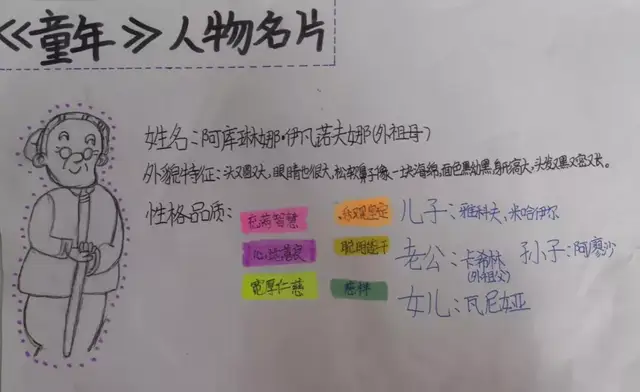 《童年》人物名片
姓名:阿库琳娜·伊凡诺夫娜(外祖母)
外貌特征:头又圆又大,眼睛也很大,松软鼻子像一块海绵,面色黑幼黑,身形高大,头发又黑又密又长。
性格品质:
沉着智慧
乐观坚定
心地善良
聪明能干
宽厚仁慈
慈祥
儿子:雅科夫,米哈伊尔
老公:卡希林(外祖父)
孙子:阿廖沙
女儿:瓦尼娅